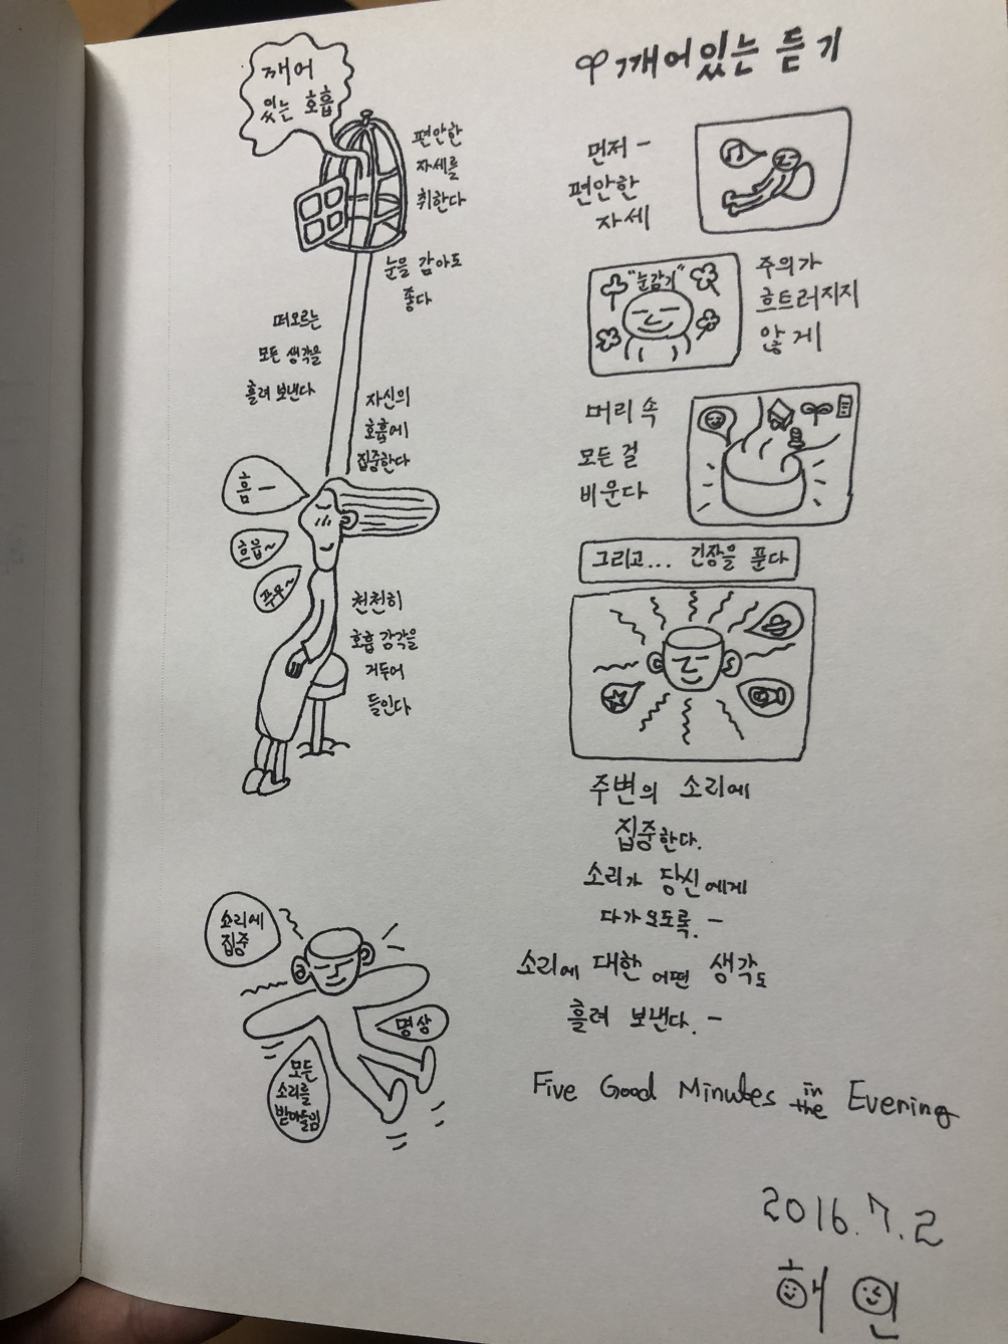 깨어
있는 호흡
편안한
자세를
취한다
눈을 감아도
좋다
떠오르는
모든 생각을
흘려 보낸다
자신의
호흡에
집중한다
흠 —
흐읍~
푸우~
천천히
호흡 감각을
거두어
들인다
소리에
집중
명상
모든
소리를
받아들임
깨어있는 듣기
먼저 —
편안한
자세
"눈감기"
주의가
흐트러지지
않게
머리 속
모든 걸
비운다
그리고... 긴장을 푼다
주변의 소리에
집중한다.
소리가 당신에게
다가오도록. —
소리에 대한 어떤 생각도
흘려 보낸다. —
Five Good Minutes in the Evening
2016.7.2
해인